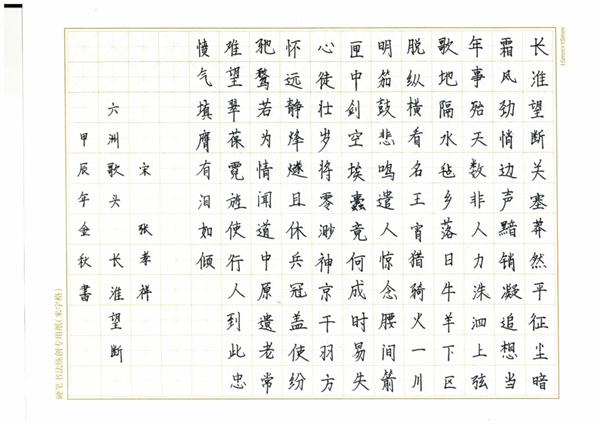 长淮望断关塞莽然平征尘暗
霜风劲悄边声黯销凝追想当
年事殆天数非人力洙泗上弦
歌地隔水毡乡落日牛羊下区
脱纵横看名王宵猎骑火一川
明笳鼓悲鸣遣人惊念腰间箭
匣中剑空埃蠹竟何成时易失
心徒壮岁将零渺神京干羽方
怀远静烽燧且休兵冠盖使纷
驰骛若为情闻道中原遗老常
难望翠葆霓旌使行人到此忠
愤气填膺有泪如倾
宋 张孝祥
六洲歌头 长淮望断
甲辰年金秋書
硬笔书法练创专用纸(米字格)
15mm×15mm